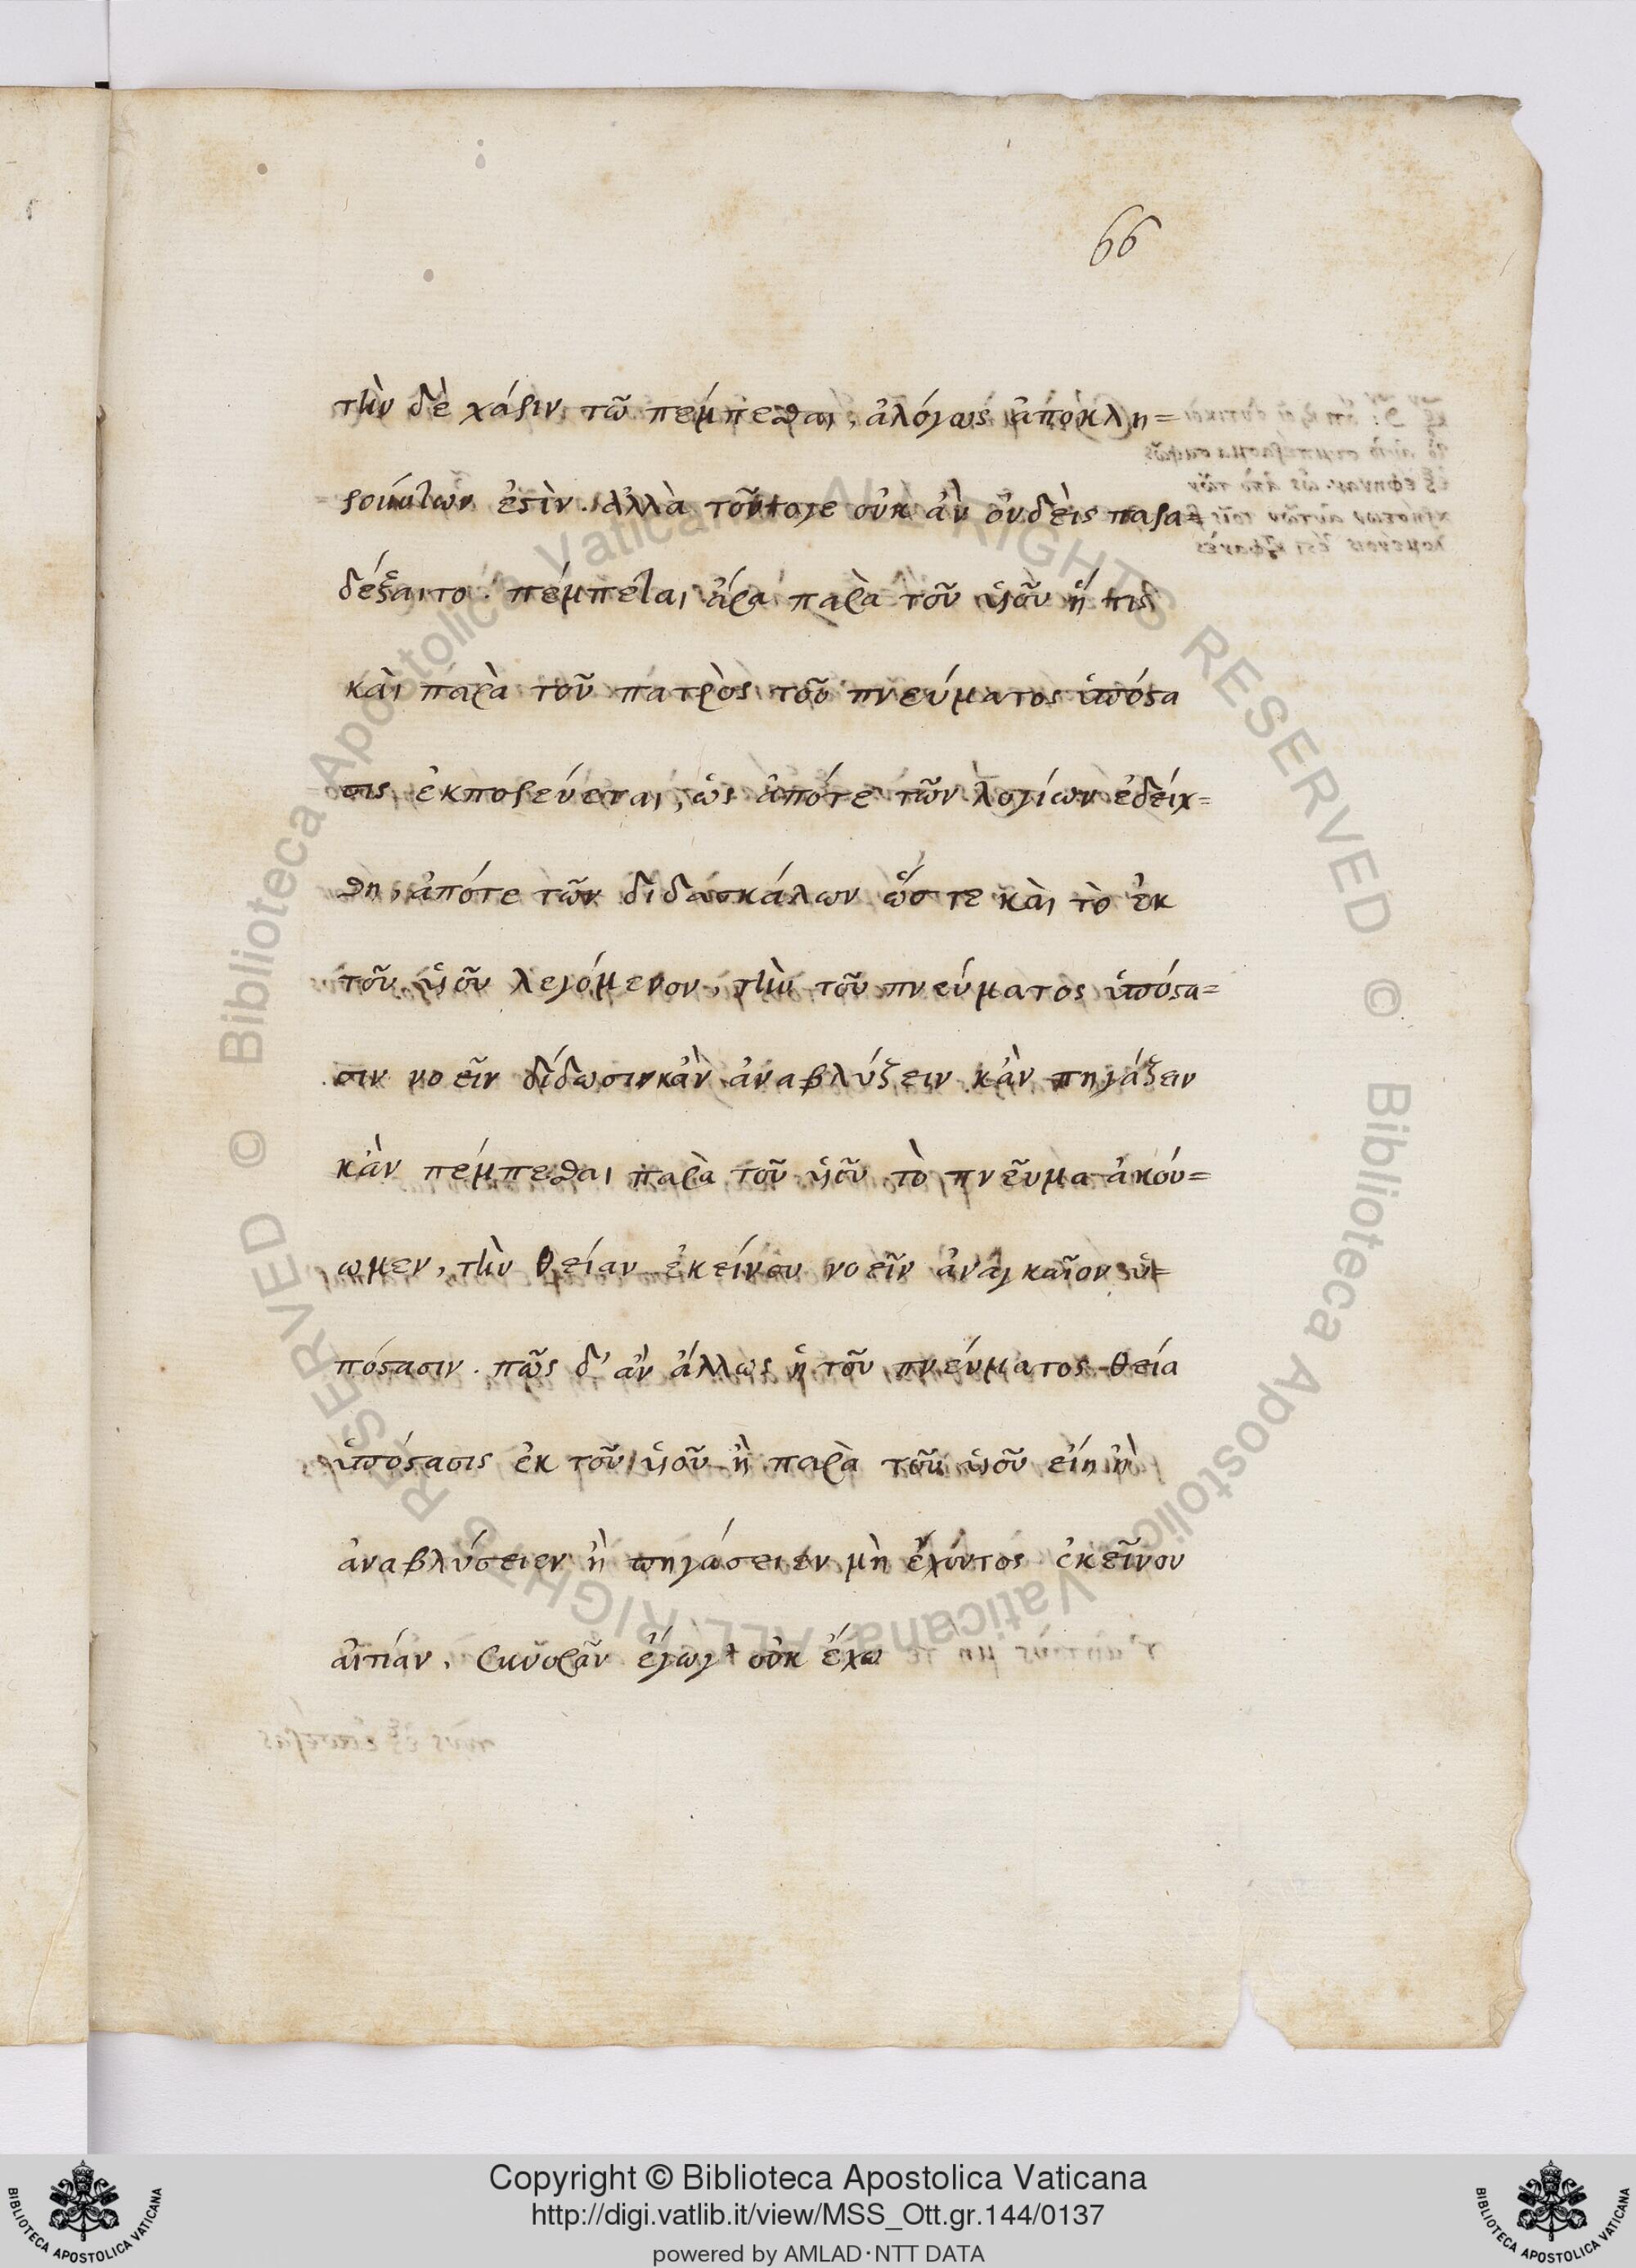 66
τὴν δὲ χάριν τῶ πέμπεσθαι, ἀλόγως ἀποκλη=
ρούντων ἐστὶν. ἀλλὰ τοῦτογε οὐκ ἂν οὐδεὶς παρα=
δέξαιτο. πέμπεται ἄρα παρὰ τοῦ υἱοῦ ἥ τις
καὶ παρὰ τοῦ πατρὸς τοῦ πνεύματος ὑπόστα
σις ἐκπορεύεται, ὡς ἀπότε τῶν λογίων ἐδείχ=
θη, ἀπότε τῶν διδασκάλων ὥστε καὶ τὸ ἐκ
τοῦ υἱοῦ λεγόμενον, τὴν τοῦ πνεύματος ὑπόστα=
σιν νοεῖν δίδωσιν κἂν ἀναβλύζειν κἂν πηγάζειν
κἂν πέμπεσθαι παρὰ τοῦ υἱοῦ τὸ πνεῦμα ἀκού=
ωμεν, τὴν θείαν ἐκείνου νοεῖν ἀναγκαῖον ὑ=
πόστασιν. πῶς δ' ἂν ἄλλως ἡ τοῦ πνεύματος θεία
ὑπόστασις ἐκ τοῦ υἱοῦ ἢ παρὰ τοῦ υἱοῦ εἴη ἢ
ἀναβλύσειεν ἢ πηγάσειεν μὴ ἔχοντος ἐκεῖνου
αἰτίαν, συνορᾶν ἔγωγε οὐκ ἔχω
© Biblioteca Apostolica Vaticana ALL RIGHTS RESERVED © Biblioteca Apostolica Vaticana ALL RIGHTS RESERVED
Copyright © Biblioteca Apostolica Vaticana
http://digi.vatlib.it/view/MSS_Ott.gr.144/0137
powered by AMLAD·NTT DATA
BIBLIOTECA APOSTOLICA VATICANA
BIBLIOTECA APOSTOLICA VATICANA